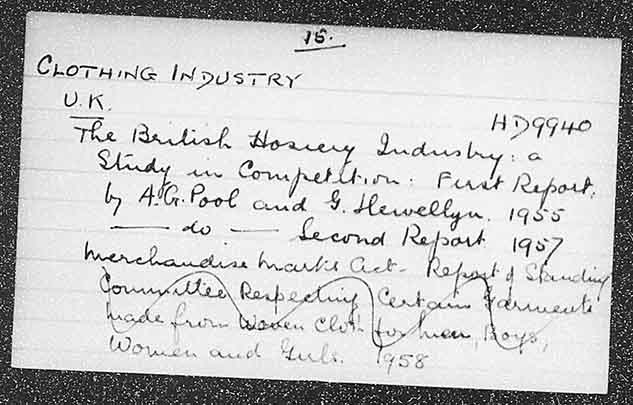 15.
CLOTHING INDUSTRY
U.K.
HD9940
The British Hosiery Industry: a
Study in Competition: First Report,
by A.G. Pool and G. Llewellyn. 1955
— do — Second Report 1957
Merchandise Marks Act - Report of Standing
Committee Respecting Certain Garments
made from Woven Cloth for Men, Boys,
Women and Girls. 1958